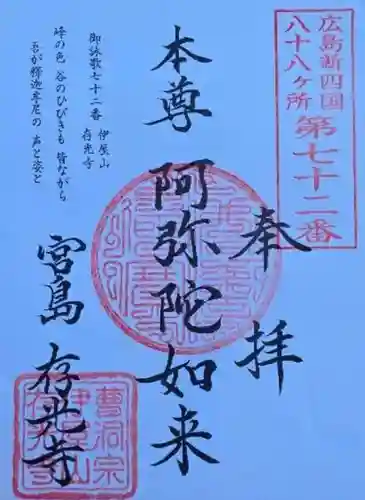 広島新四国
八十八ヶ所 第七十二番
奉拝
本尊 阿弥陀如来
御詠歌七十二番 伊屋山
存光寺
峰の色 谷のひびきも 皆ながら
吾が釋迦牟尼の 声と姿と
宮島 存光寺
曹洞宗
伊屋山
存光寺